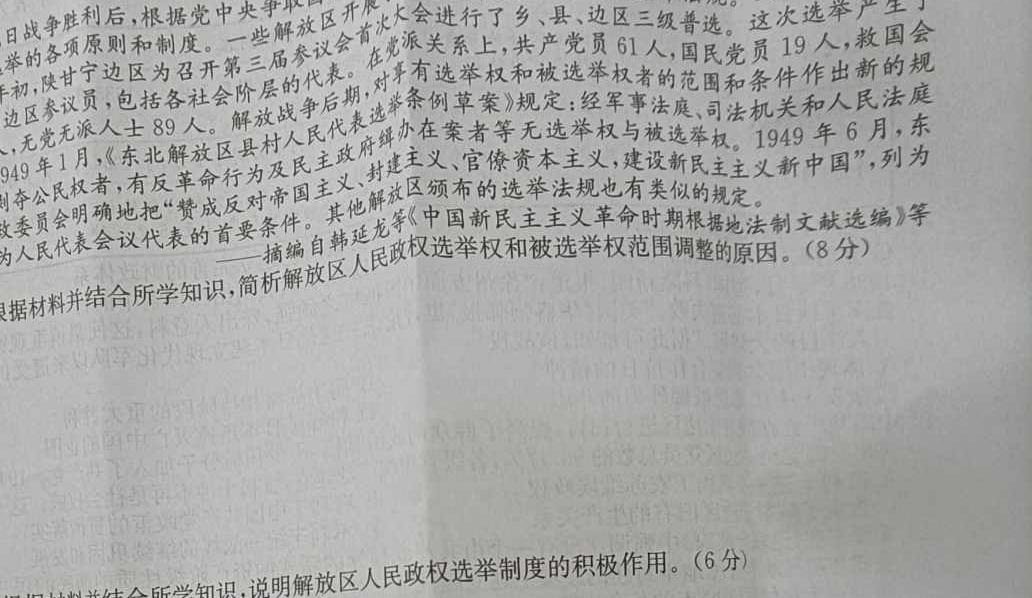 日战争胜利后,根据党中央争取
举的各项原则和制度。一些解放区开展
年初,陕甘宁边区为召开第三届参议会首次大会进行了乡、县、边区三级普选。这次选举产生了
边区参议员,包括各社会阶层的代表。在党派关系上,共产党员61人,国民党员19人,救国会
,无党无派人士89人。解放战争后期,对享有选举权和被选举权者的范围和条件作出新的规
949年1月,《东北解放区县村人民代表选举条例草案》规定:经军事法庭、司法机关和人民法庭
剥夺公民权者,有反革命行为及民主政府缉办在案者等无选举权与被选举权。1949年6月,东
政委员会明确地把“赞成反对帝国主义、封建主义、官僚资本主义,建设新民主主义新中国”,列为
为人民代表会议代表的首要条件。其他解放区颁布的选举法规也有类似的规定。
——摘编自韩延龙等《中国新民主主义革命时期根据地法制文献选编》等
根据材料并结合所学知识,简析解放区人民政权选举权和被选举权范围调整的原因。(8分)
材料并结合所学知识,说明解放区人民政权选举制度的积极作用。(6分)